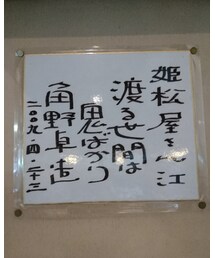 姫松屋さん江
渡る世間は
鬼ばかり
角野卓造
二〇〇九・四・二十三